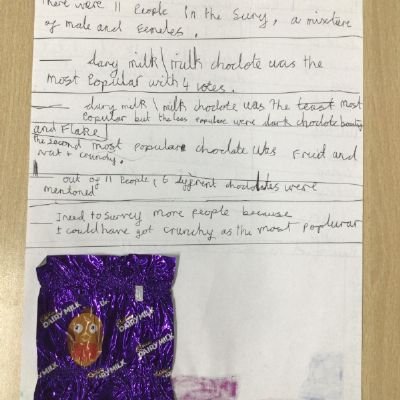 There were 11 People in the Survy, a mixture
of male and females.
dairy milk \ milk choclote was the
most Popular with 4 votes.
dairy milk \ milk choclote was the least most
Popular but the leas Populare were dark choclote bounty
and Flake
The second most populare choclate was Fruit and
nut + crunchy.
out of 11 People, 6 different choclates were
mentoned
I need to survey more people because
I could have got crunchy as the most poplurar
DAIRY MILK
DAIRY MILK
DAIRY MILK
DAIRY MILK